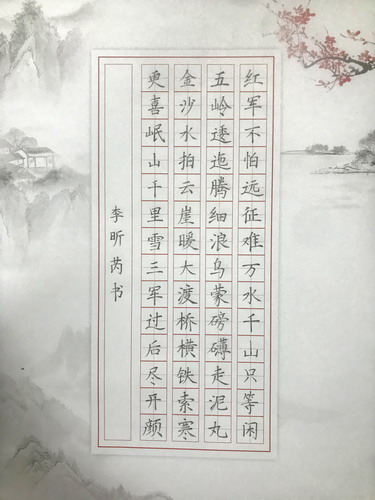 红军不怕远征难万水千山只等闲
五岭逶迤腾细浪乌蒙磅礴走泥丸
金沙水拍云崖暖大渡桥横铁索寒
更喜岷山千里雪三军过后尽开颜
李昕芮书